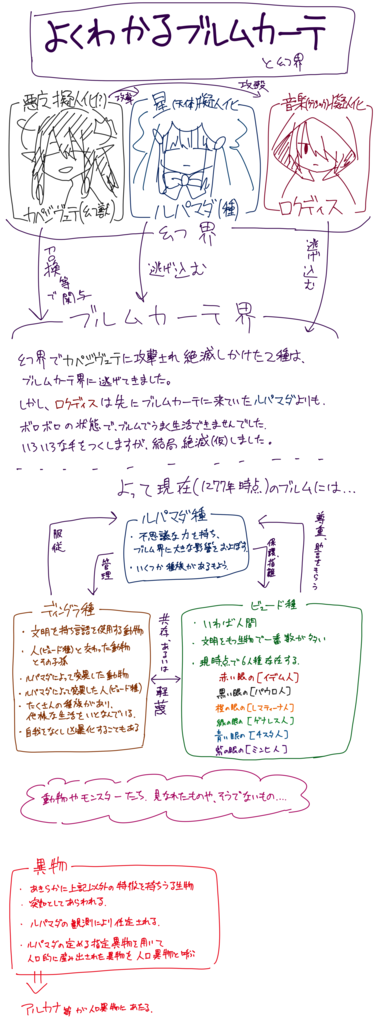 よくわかるブルムカーテ
と幻界
悪立擬人化(?)
攻撃
星(天体)擬人化
攻撃
音楽(クラシック)擬人化
カペジヴェテ(幻獣)
ルパマダ(種)
ロケディス
幻界
召換等で関与
逃げ込む
逃げ込む
ブルムカーテ界
幻界でカペジヴェテに攻撃され絶滅しかけた2種は、
ブルムカーテ界に逃げてきました。
しかし、ロケディスは先にブルムカーテに来ていたルパマダよりも、
ボロボロの状態で、ブルムでうまく生活できませんでした。
いろいろな手をつくしますが、結局絶滅(仮)しました。
よって現在(1277年時点)のブルムには…
ルパマダ種
・不思議な力を持ち、
ブルム界に大きな影響をおよぼす。
・いくつか種族があるもよう。
服従
管理
保護・指離
尊重、助言をもらう
ディングラ種
・文明を持ち言語を使用する動物
・人(ビェード種)と交わった動物
とその子孫
・ルパマダによって発展した動物
・ルパマダによって発展した人(ビェード種)
・たくさんの種族があり、
多様な生活をいとなんでいる。
・自我をなくし凶暴化することもある
共存、あるいは軽蔑
ビェード種
・いわば人間
・文明をもつ生物で一番数が多い
・現時点で6人種存在する.
赤い眼の[イデム人]
黒い眼の[パウロ人]
橙の眼の[レスティーナ人]
緑の眼の[ゲナレス人]
青い眼の[チスタ人]
紫の眼の[ミンヒ人]
動物やモンスターたち、見なれたものや、そうでないもの….
異物
・あきらかに上記以外の特徴を持ちうる生物
・突如としてあらわれる.
・ルパマダの観測により任定される.
・ルパマダの定める指定異物を用いて
人口的に産み出された異物を人口異物と呼ぶ
アルカナ等が人口異物にあたる.